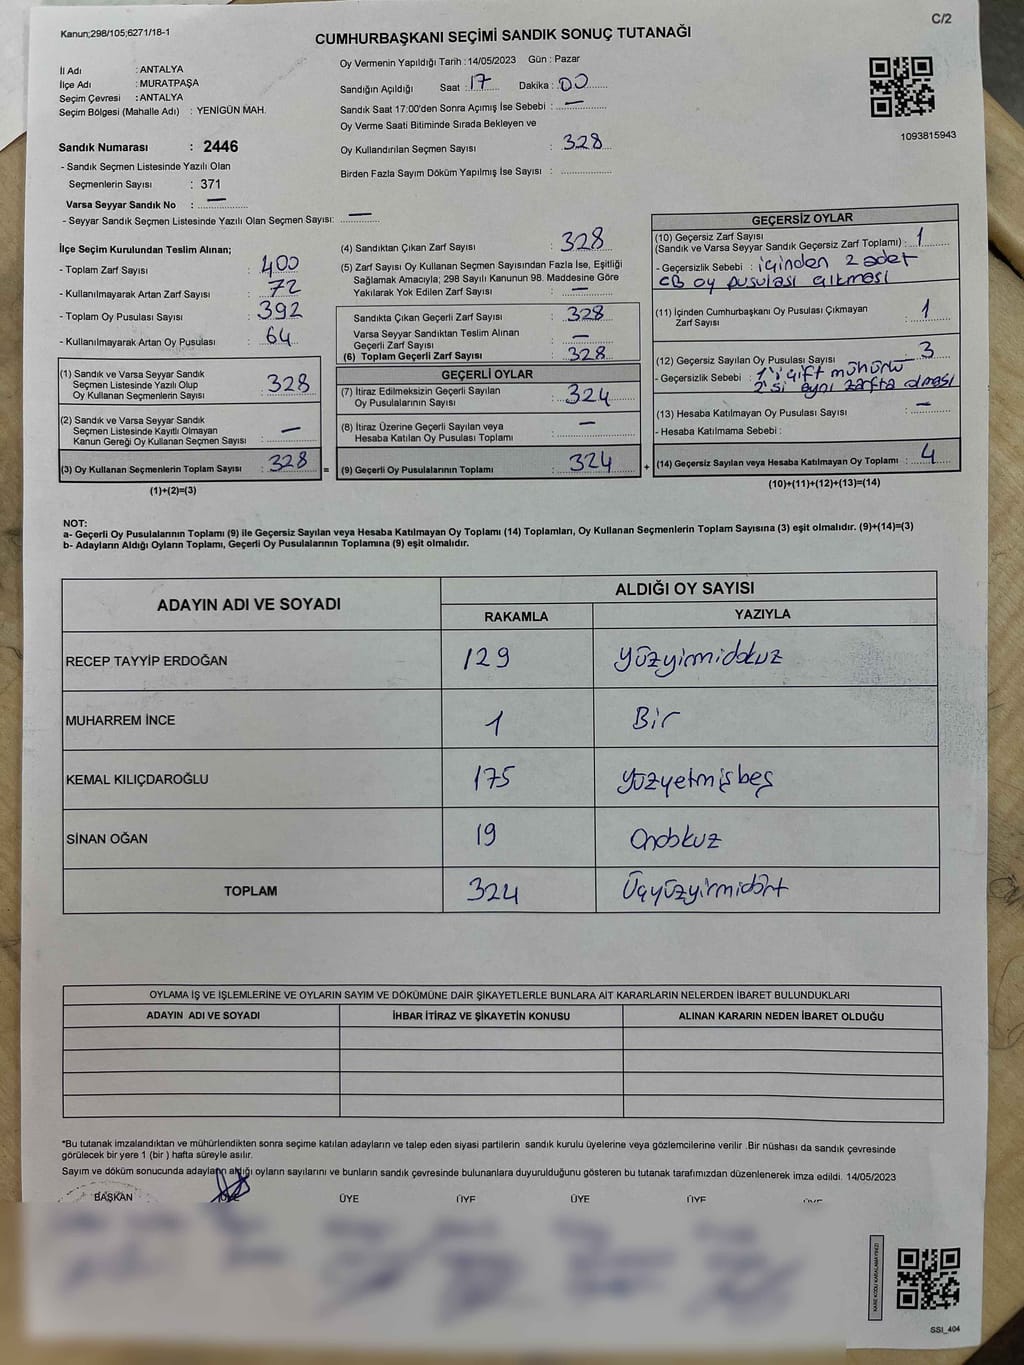 Kanun;298/105;6271/18-1
C/2
CUMHURBAŞKANI SEÇİMİ SANDIK SONUÇ TUTANAĞI
İl Adı : ANTALYA
İlçe Adı : MURATPAŞA
Seçim Çevresi : ANTALYA
Seçim Bölgesi (Mahalle Adı) : YENİGÜN MAH.
Sandık Numarası : 2446
- Sandık Seçmen Listesinde Yazılı Olan
Seçmenlerin Sayısı : 371
Varsa Seyyar Sandık No : —
- Seyyar Sandık Seçmen Listesinde Yazılı Olan Seçmen Sayısı: —
Oy Vermenin Yapıldığı Tarih : 14/05/2023 Gün : Pazar
Sandığın Açıldığı Saat : 17 Dakika : 00
Sandık Saat 17:00'den Sonra Açımış İse Sebebi : —
Oy Verme Saati Bitiminde Sırada Bekleyen ve
Oy Kullandırılan Seçmen Sayısı : 328
Birden Fazla Sayım Döküm Yapılmış İse Sayısı :
1093815943
İlçe Seçim Kurulundan Teslim Alınan;
- Toplam Zarf Sayısı : 400
- Kullanılmayarak Artan Zarf Sayısı : 72
- Toplam Oy Pusulası Sayısı : 392
- Kullanılmayarak Artan Oy Pusulası : 64
(1) Sandık ve Varsa Seyyar Sandık
Seçmen Listesinde Yazılı Olup
Oy Kullanan Seçmenlerin Sayısı : 328
(2) Sandık ve Varsa Seyyar Sandık
Seçmen Listesinde Kayıtlı Olmayan
Kanun Gereği Oy Kullanan Seçmen Sayısı : —
(3) Oy Kullanan Seçmenlerin Toplam Sayısı : 328
(1)+(2)=(3)
(4) Sandıktan Çıkan Zarf Sayısı : 328
(5) Zarf Sayısı Oy Kullanan Seçmen Sayısından Fazla İse, Eşitliği
Sağlamak Amacıyla; 298 Sayılı Kanunun 98. Maddesine Göre
Yakılarak Yok Edilen Zarf Sayısı : —
Sandıkta Çıkan Geçerli Zarf Sayısı : 328
Varsa Seyyar Sandıktan Teslim Alınan
Geçerli Zarf Sayısı : —
(6) Toplam Geçerli Zarf Sayısı : 328
GEÇERLİ OYLAR
(7) İtiraz Edilmeksizin Geçerli Sayılan
Oy Pusulalarının Sayısı : 324
(8) İtiraz Üzerine Geçerli Sayılan veya
Hesaba Katılan Oy Pusulası Toplamı : —
= (9) Geçerli Oy Pusulalarının Toplamı : 324
GEÇERSİZ OYLAR
(10) Geçersiz Zarf Sayısı
(Sandık ve Varsa Seyyar Sandık Geçersiz Zarf Toplamı) : 1
- Geçersizlik Sebebi : içinden 2 adet
CB oy pusulası çıkması
(11) İçinden Cumhurbaşkanı Oy Pusulası Çıkmayan
Zarf Sayısı : 1
(12) Geçersiz Sayılan Oy Pusulası Sayısı : 3
- Geçersizlik Sebebi : 1'i çift mühürlü
2'si aynı zarfta olması
(13) Hesaba Katılmayan Oy Pusulası Sayısı : —
- Hesaba Katılmama Sebebi :
+ (14) Geçersiz Sayılan veya Hesaba Katılmayan Oy Toplamı : 4
(10)+(11)+(12)+(13)=(14)
NOT:
a- Geçerli Oy Pusulalarının Toplamı (9) ile Geçersiz Sayılan veya Hesaba Katılmayan Oy Toplamı (14) Toplamları, Oy Kullanan Seçmenlerin Toplam Sayısına (3) eşit olmalıdır. (9)+(14)=(3)
b- Adayların Aldığı Oyların Toplamı, Geçerli Oy Pusulalarının Toplamına (9) eşit olmalıdır.
ADAYIN ADI VE SOYADI ALDIĞI OY SAYISI
RAKAMLA YAZIYLA
RECEP TAYYİP ERDOĞAN 129 Yüzyirmidokuz
MUHARREM İNCE 1 Bir
KEMAL KILIÇDAROĞLU 175 Yüzyetmişbeş
SİNAN OĞAN 19 Ondokuz
TOPLAM 324 Üçyüzyirmidört
OYLAMA İŞ VE İŞLEMLERİNE VE OYLARIN SAYIM VE DÖKÜMÜNE DAİR ŞİKAYETLERLE BUNLARA AİT KARARLARIN NELERDEN İBARET BULUNDUKLARI
ADAYIN ADI VE SOYADI İHBAR İTİRAZ VE ŞİKAYETİN KONUSU ALINAN KARARIN NEDEN İBARET OLDUĞU
*Bu tutanak imzalandıktan ve mühürlendikten sonra seçime katılan adayların ve talep eden siyasi partilerin sandık kurulu üyelerine veya gözlemcilerine verilir .Bir nüshası da sandık çevresinde
görülecek bir yere 1 (bir ) hafta süreyle asılır.
Sayım ve döküm sonucunda adayların aldığı oyların sayılarını ve bunların sandık çevresinde bulunanlara duyurulduğunu gösteren bu tutanak tarafımızdan düzenlenerek imza edildi. 14/05/2023
BAŞKAN ÜYE ÜYE ÜYE ÜYE ÜYE
KARE KODU KARALAMAYINIZ!
SSI_404